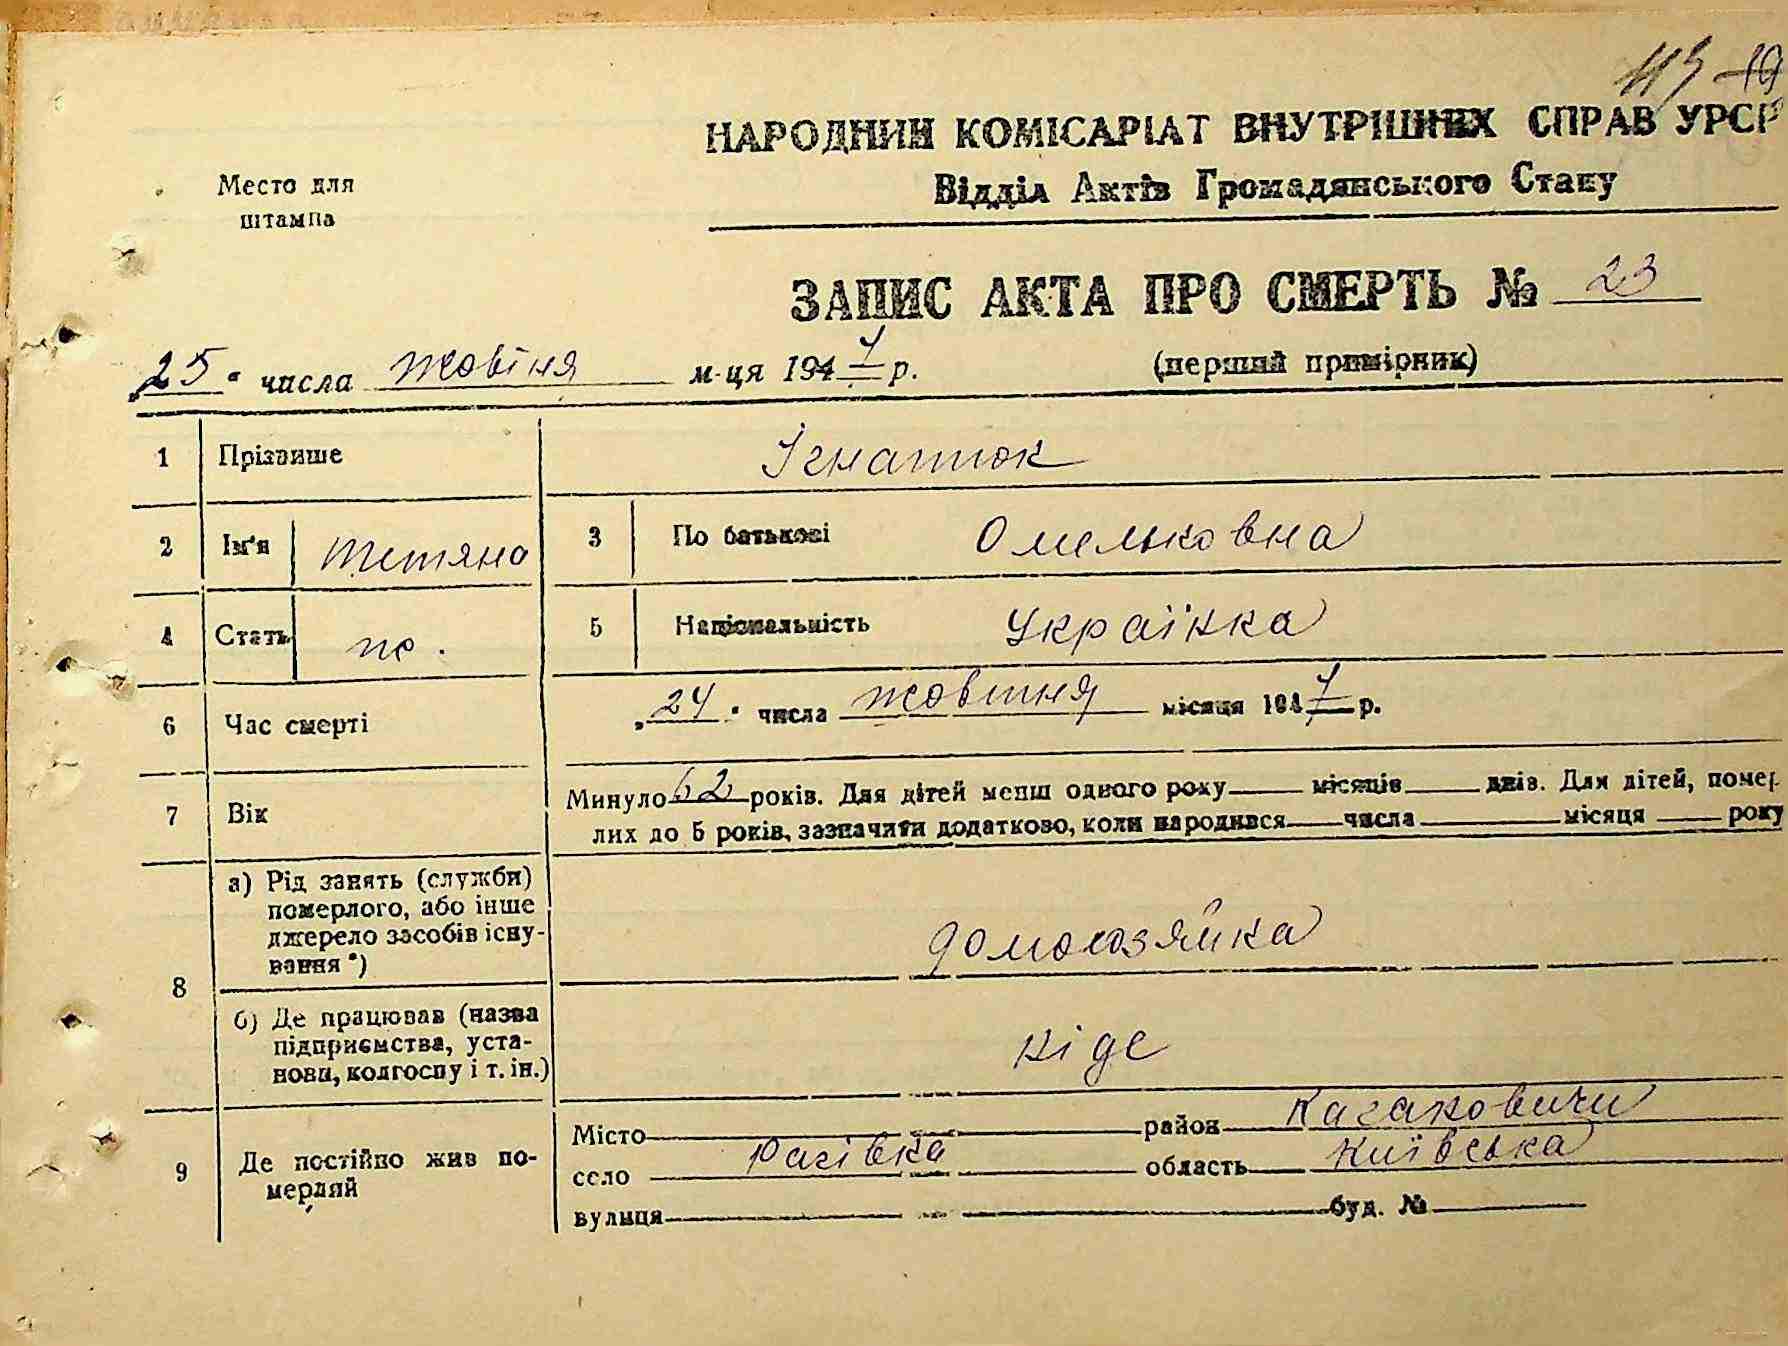 115 19
НАРОДНИЙ КОМІСАРІАТ ВНУТРІШНІХ СПРАВ УРСР
Место для
штампа
Відділ Актів Громадянського Стану
ЗАПИС АКТА ПРО СМЕРТЬ № 23
„25“ числа жовтня м-ця 1947 р. (перший примірник)
1 Прізвище Ігнатюк
2 Ім'я Тетяна 3 По батькові Омельковна
4 Стать 5 Національність Українка
6 Час смерті „24“ числа жовтня місяця 1947 р.
7 Вік Минуло 62 років. Для дітей менш одного року місяців днів. Для дітей, помер-
лих до 5 років, зазначити додатково, коли народився числа місяця року
8 а) Рід занять (служби)
померлого, або інше
джерело засобів існу-
вання *) домохозяйка
б) Де працював (назва
підприємства, уста-
нови, колгоспу і т. ін.) ніде
9 Де постійно жив по-
мерлий
Місто район Кагановичи
село Рагівка область Київська
вулиця буд. №